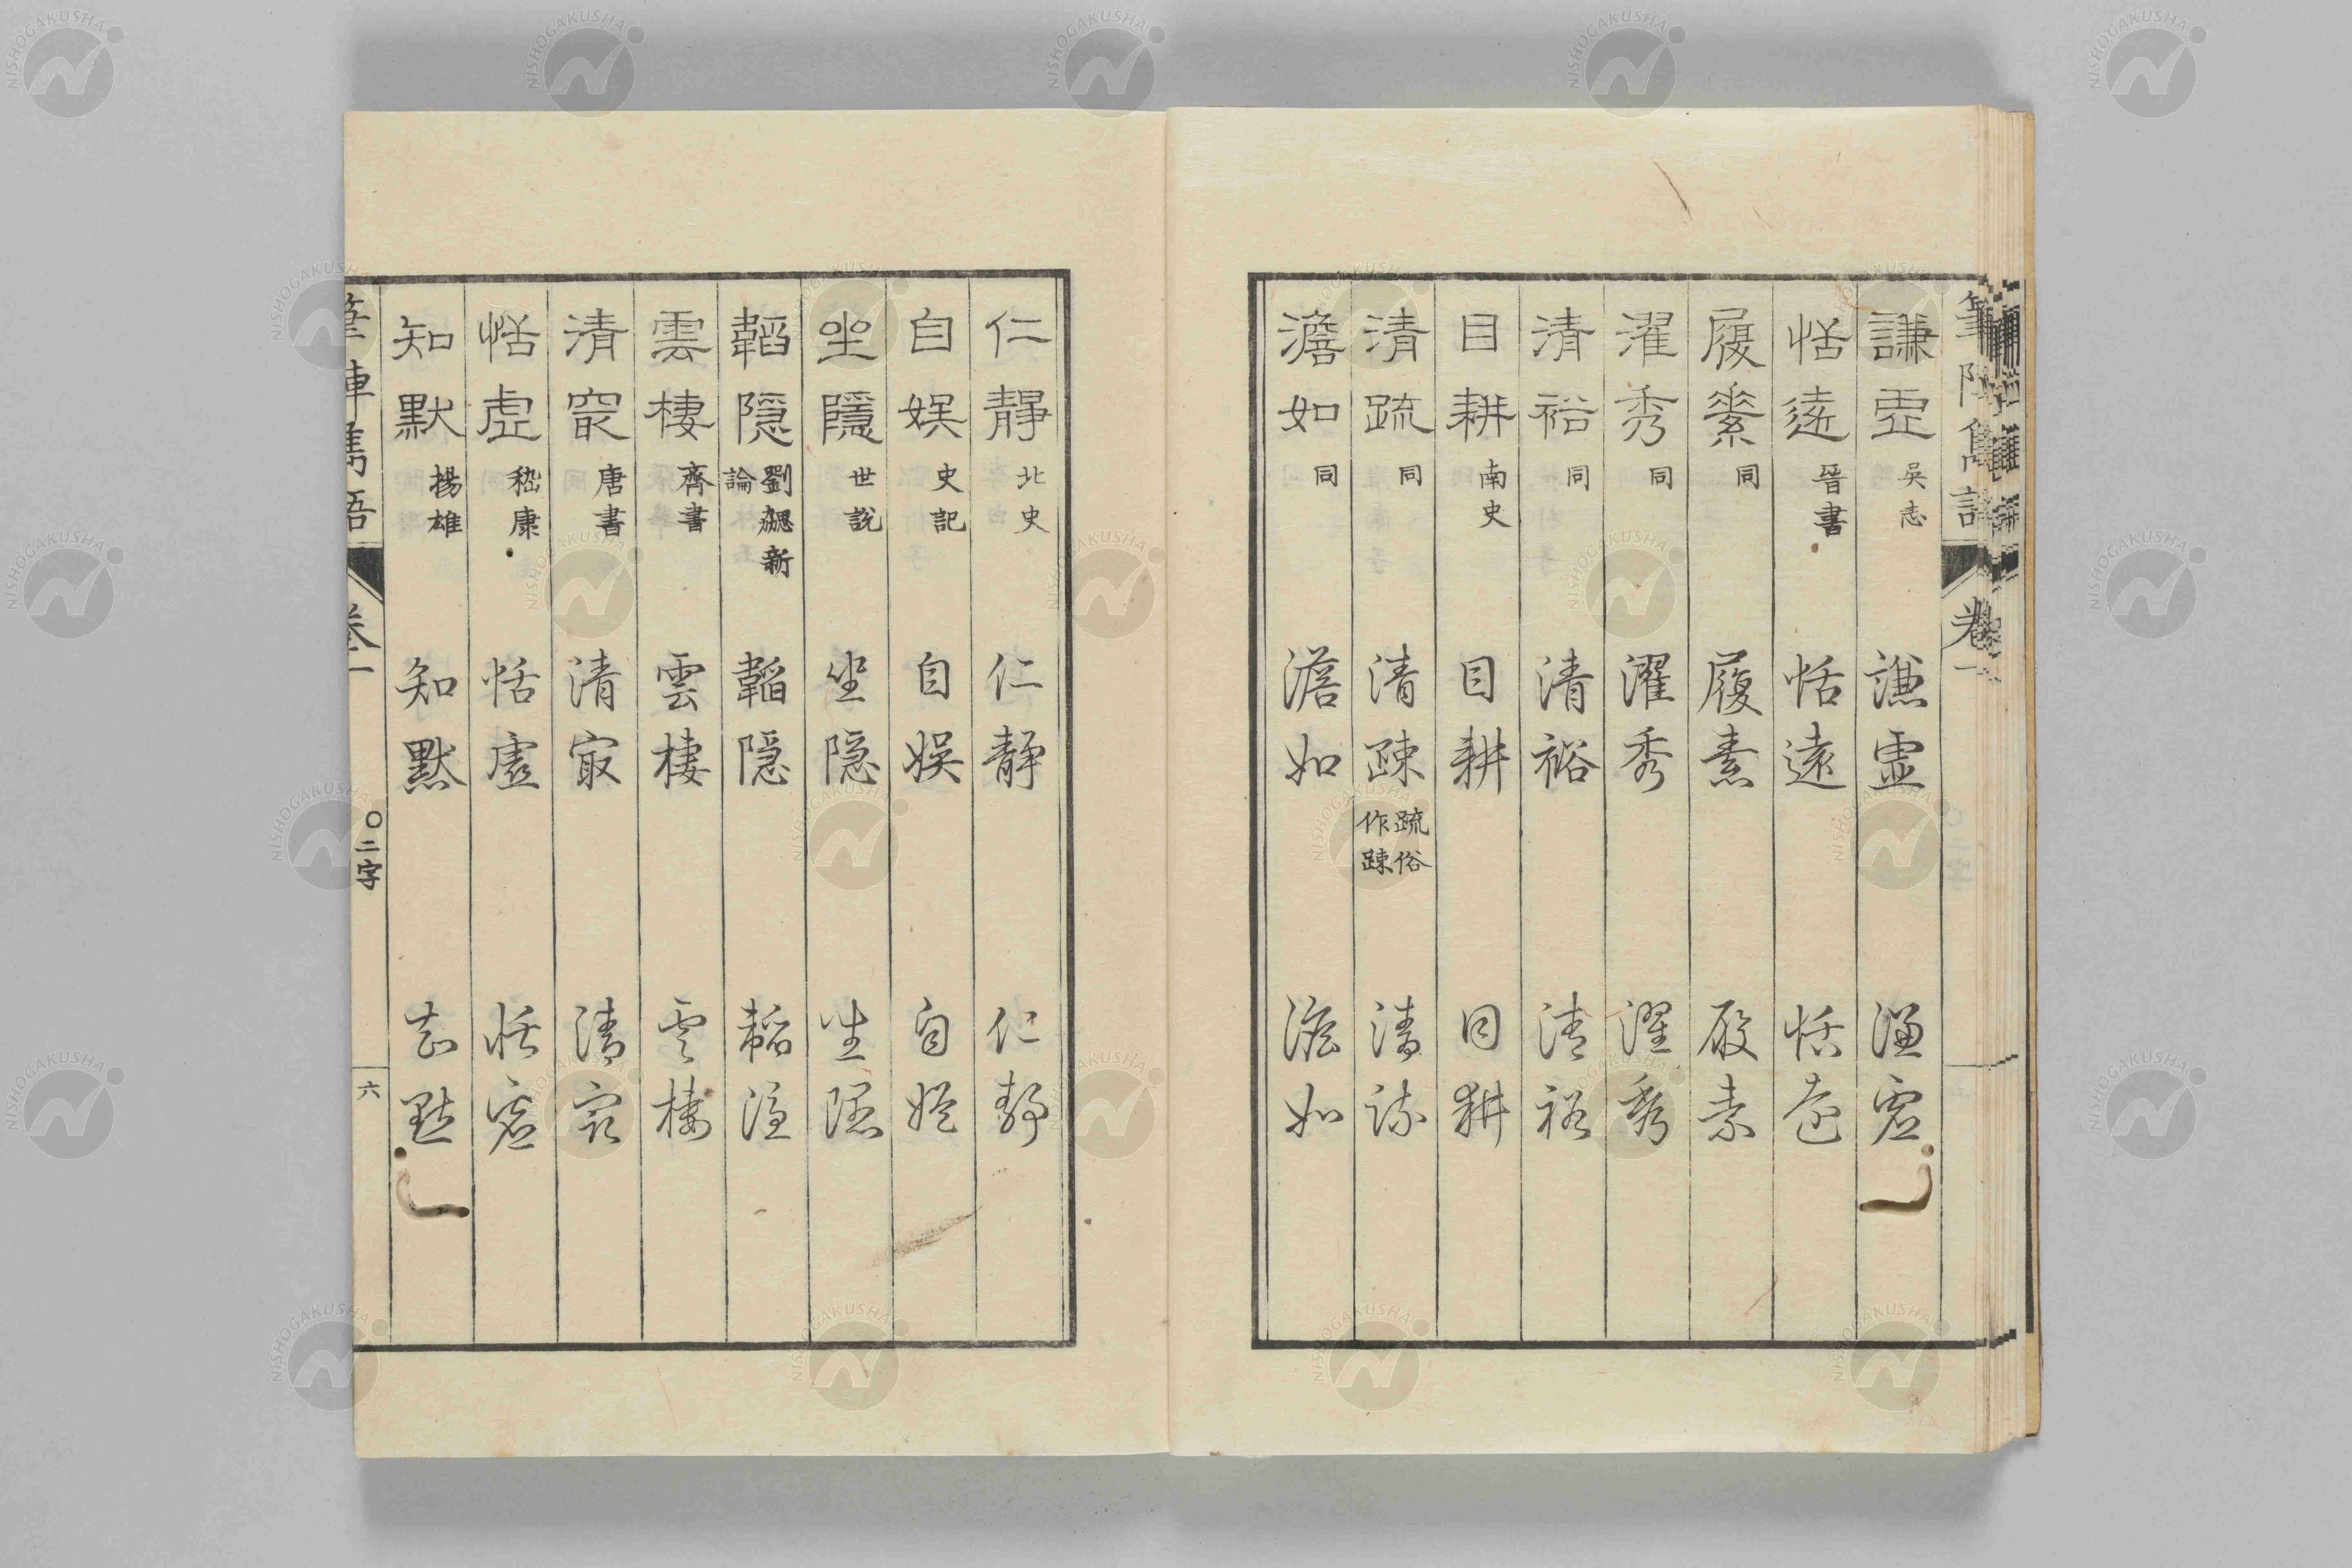 筆陣雋語 卷一
謙虛 吳志 謙虛 謙虛
恬遠 晉書 恬遠 恬遠
履素 同 履素 履素
濯秀 同 濯秀 濯秀
清裕 同 清裕 清裕
目耕 南史 目耕 目耕
清疏 同 清疎 疏俗作疎 清疎
澹如 同 澹如 澹如
仁靜 北史 仁靜 仁靜
自娛 史記 自娛 自娛
坐隱 世說 坐隱 坐隱
韜隱 劉勰新論 韜隱 韜隱
雲棲 齊書 雲棲 雲棲
清寂 唐書 清寂 清寂
恬虛 嵇康 恬虛 恬虛
知默 楊雄 知默 知默
筆陣雋語 卷一 〇二字 六
NISHOGAKUSHA